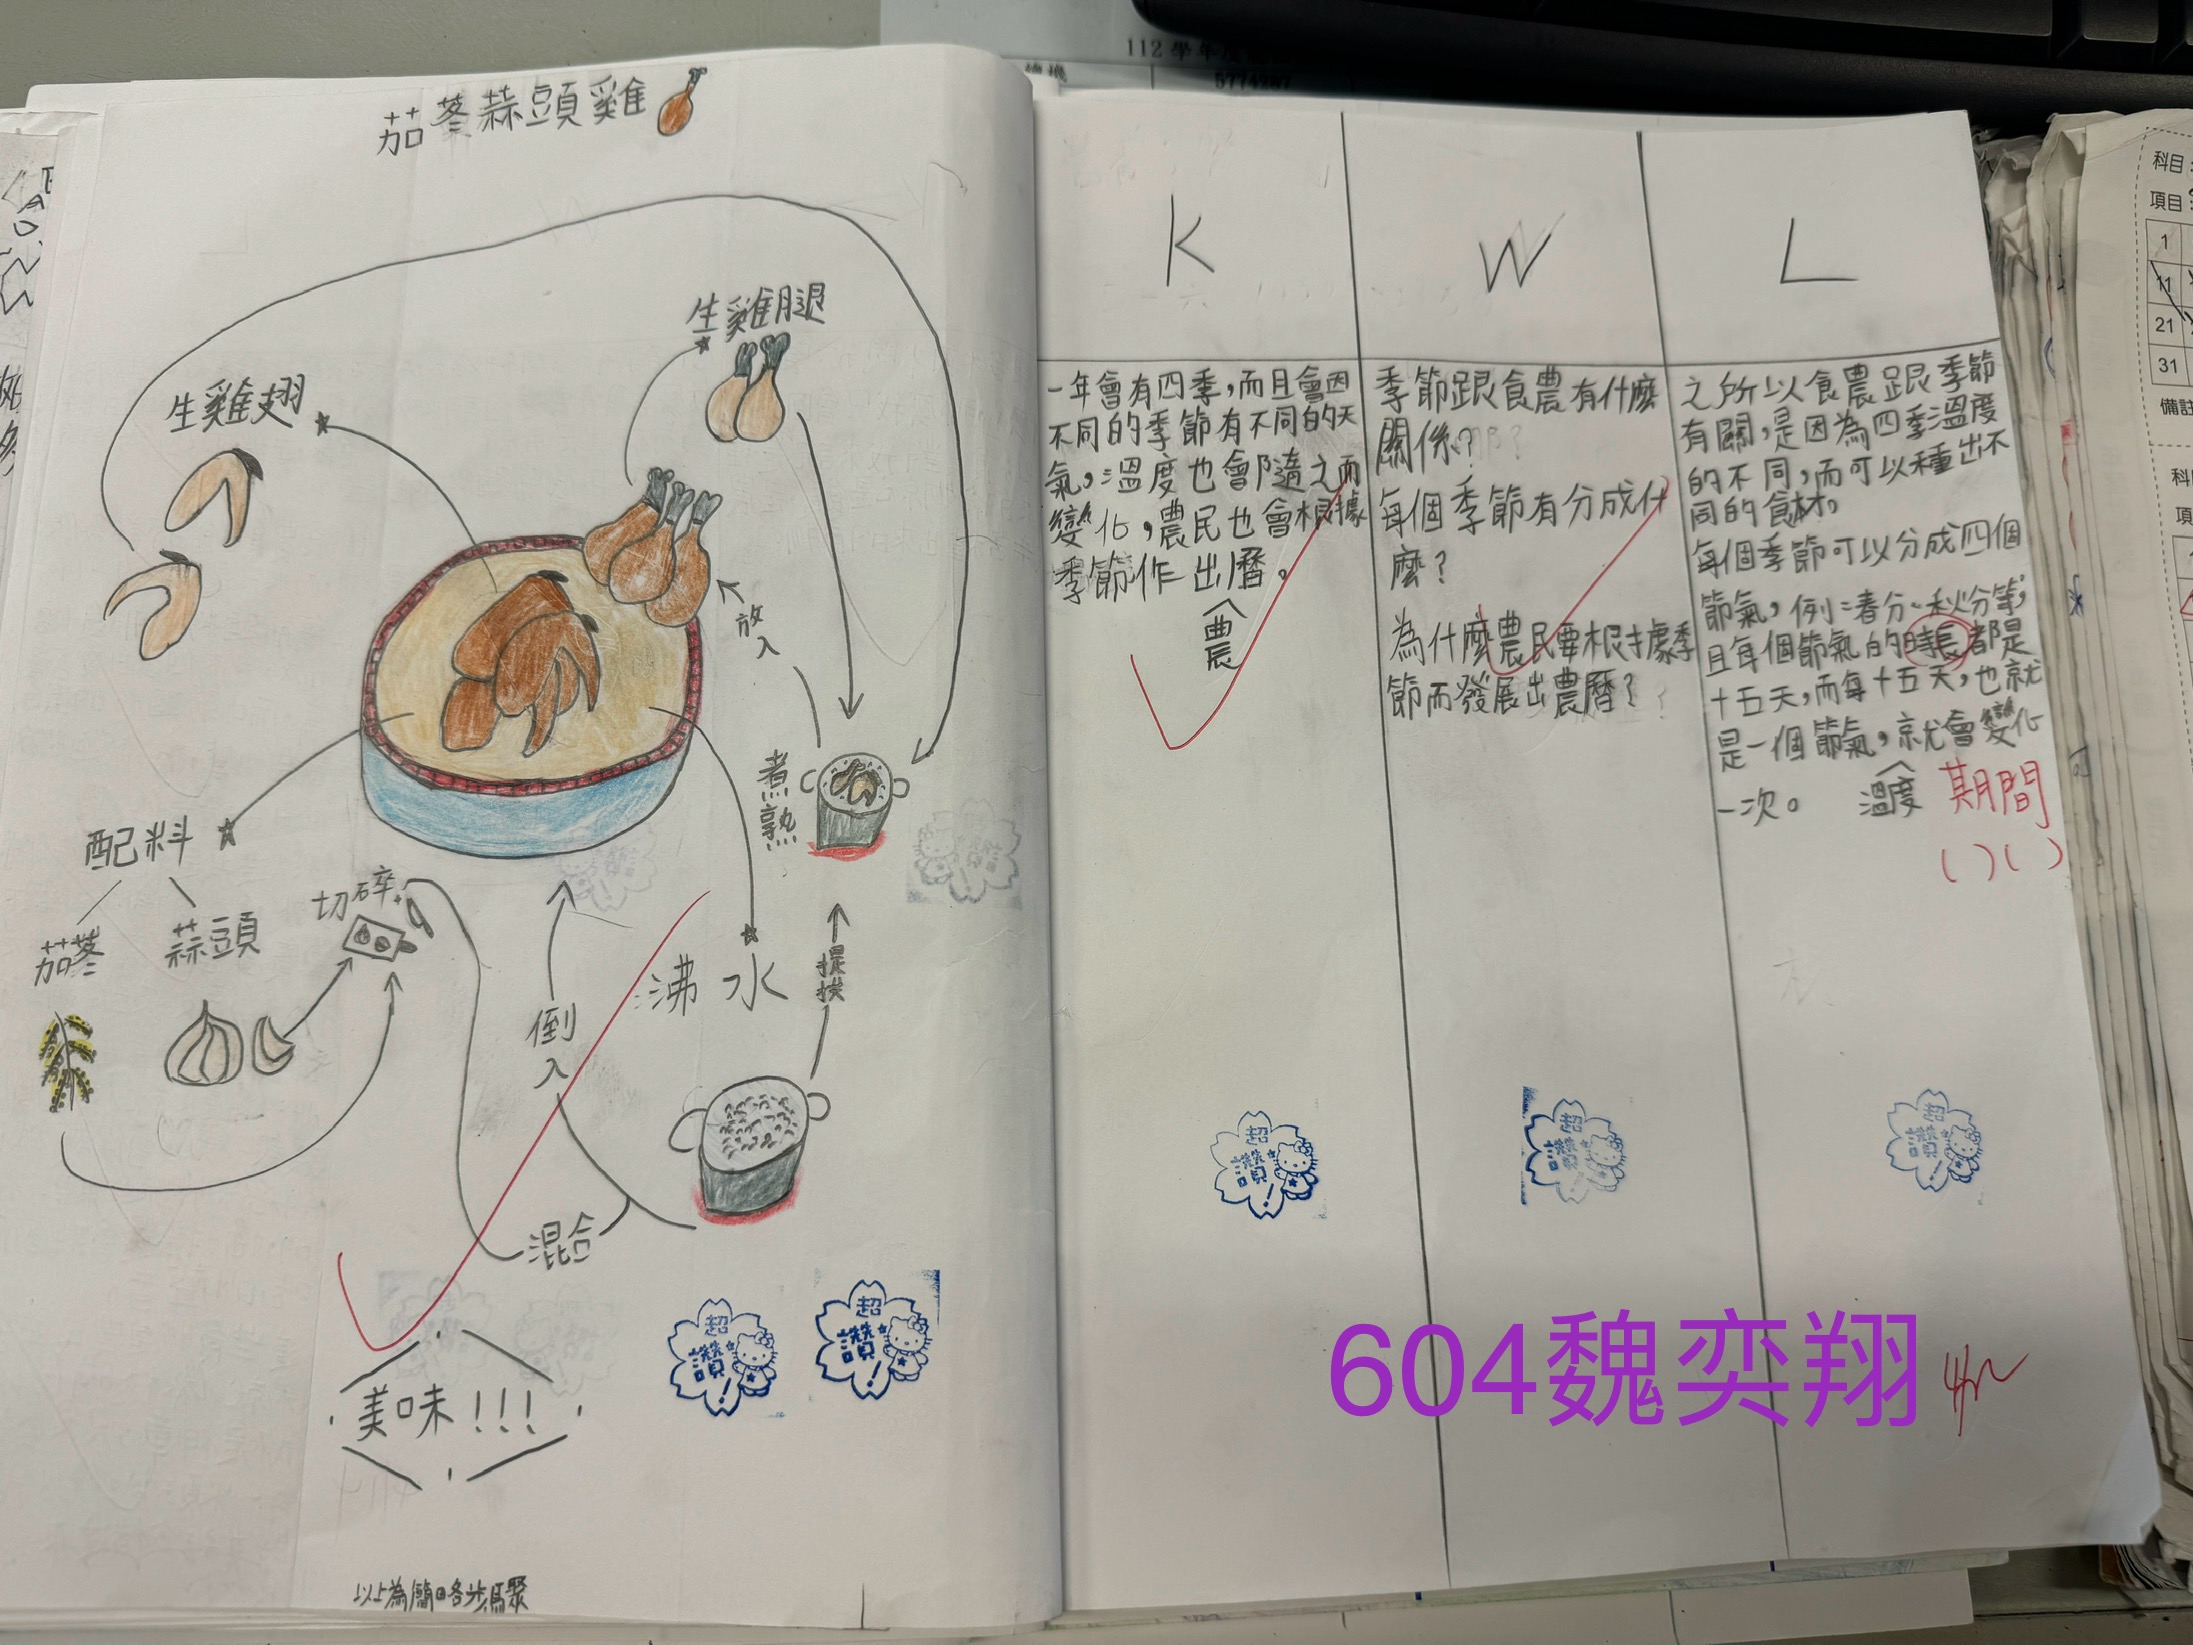 茄苳蒜頭雞
生雞腿
生雞翅
放入
煮熟
配料
切碎
茄苳
蒜頭
沸水
倒入
混合
美味!!!
K
一年會有四季,而且會因
不同的季節有不同的天
氣,溫度也會隨之而
變化,農民也會根據
季節作出曆。
農
W
季節跟食農有什麼
關係?
每個季節有分成什
麼?
為什麼農民要根據季
節而發展出農曆?
L
之所以食農跟季節
有關,是因為四季溫度
的不同,而可以種出不
同的食材。
每個季節可以分成四個
節氣,例:春分、秋分等,
且每個節氣的時長都是
十五天,而每十五天,也就
是一個節氣,就會變化
一次。
溫度
期間
( )( )
超讚!
超讚!
超讚!
超讚!
超讚!
604魏奕翔
112學年度
5774287
科目
項目
1
11
21
31
備註